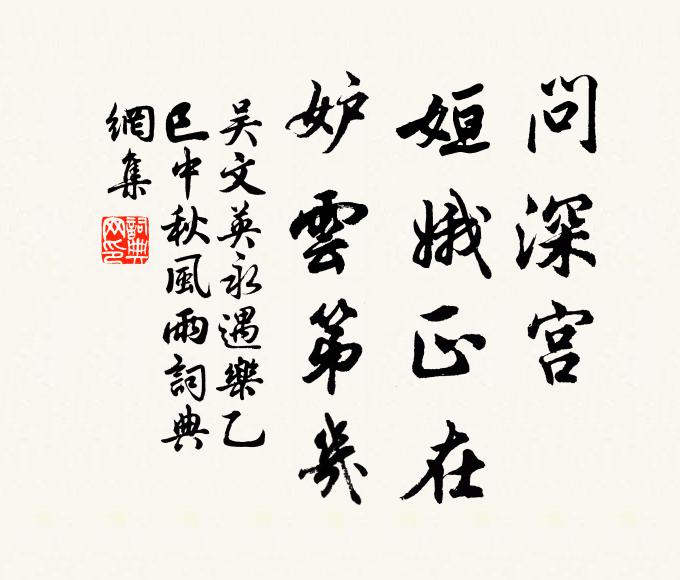 問深宮
姮娥正在
妒雲第幾
吴文英永遇樂乙
巳中秋風雨詞典
網集
詞典
网印